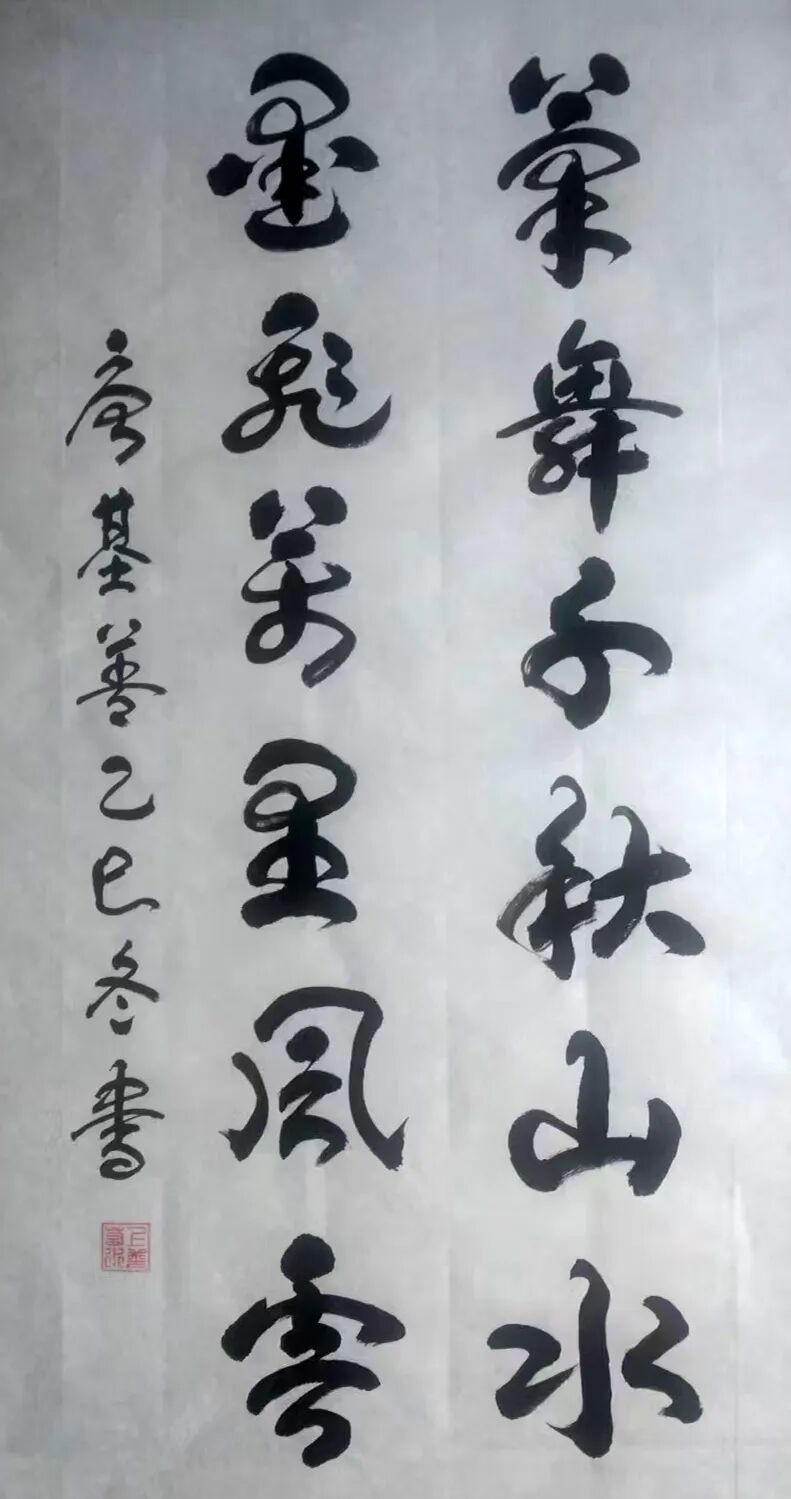 筆舞千秋山水
墨飛萬里風雲
唐基善乙巳冬書